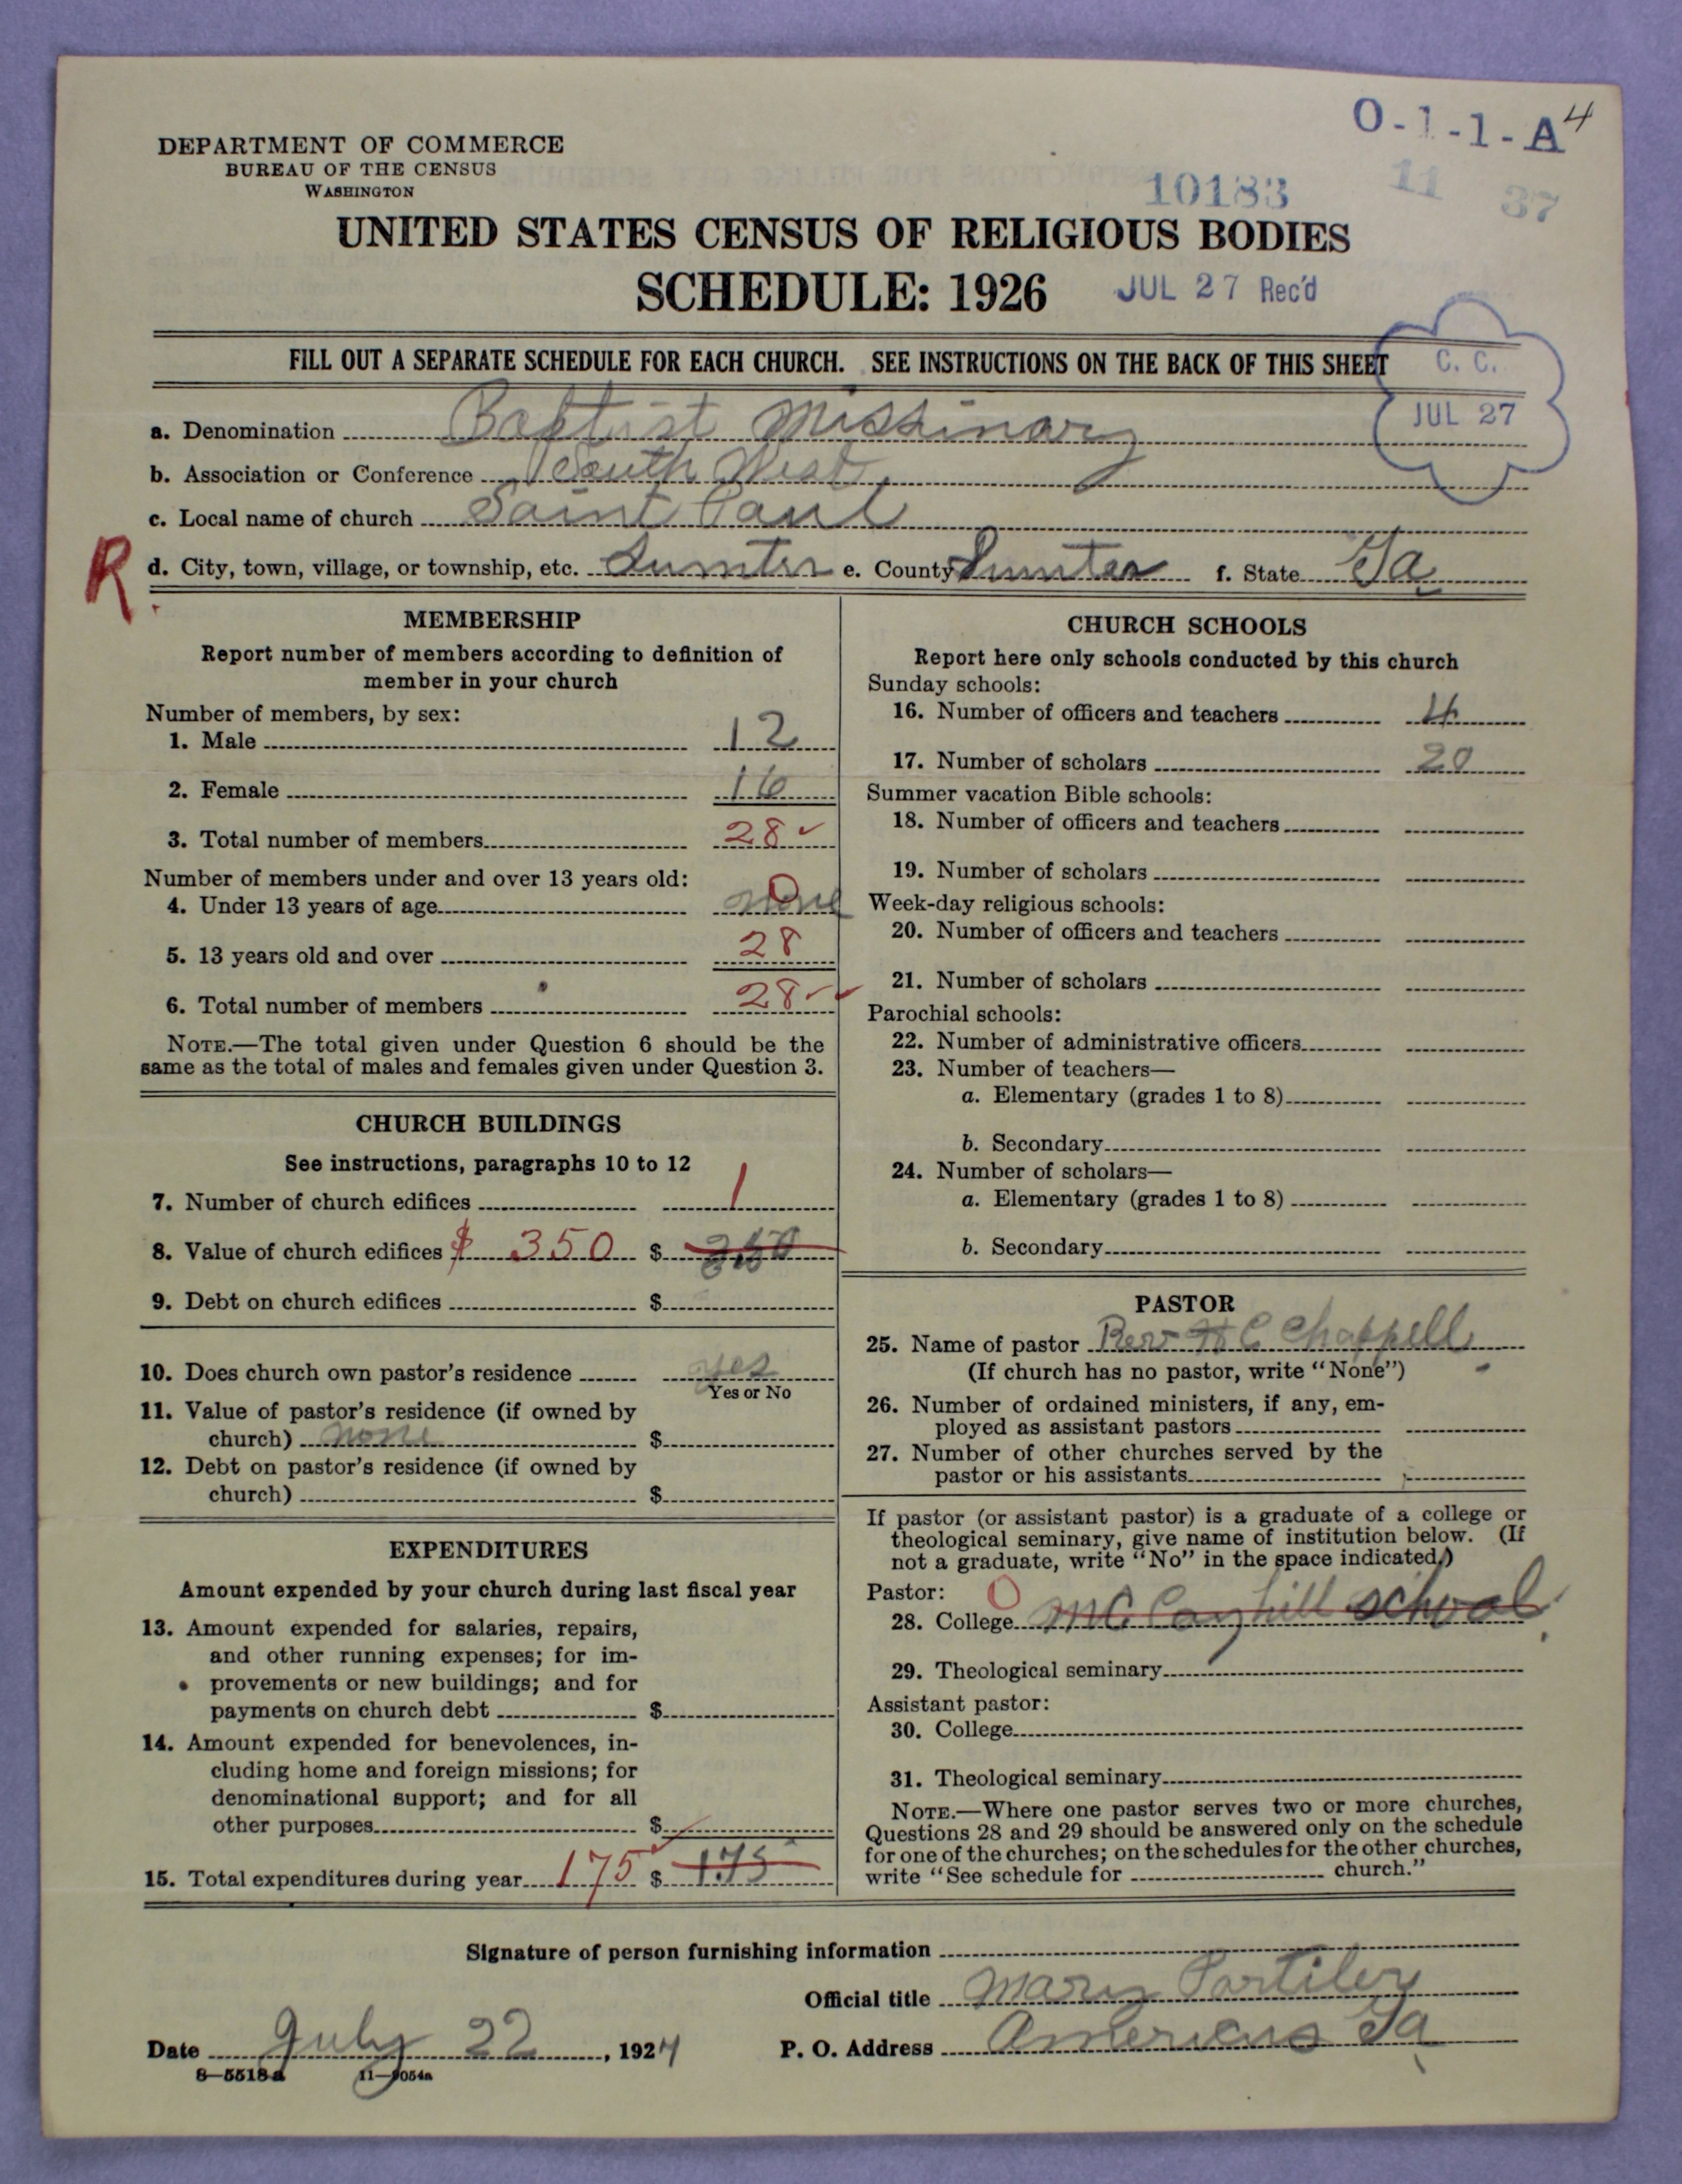 O-1-1-A 4
DEPARTMENT OF COMMERCE
BUREAU OF THE CENSUS
WASHINGTON
10183 11 37
UNITED STATES CENSUS OF RELIGIOUS BODIES
SCHEDULE: 1926 JUL 27 Rec'd
FILL OUT A SEPARATE SCHEDULE FOR EACH CHURCH. SEE INSTRUCTIONS ON THE BACK OF THIS SHEET
C. C.
JUL 27
a. Denomination Baptist Missinary
b. Association or Conference South West
c. Local name of church Saint Paul
R d. City, town, village, or township, etc. Sumter e. County Sumter f. State Ga
MEMBERSHIP
Report number of members according to definition of
member in your church
Number of members, by sex:
1. Male 12
2. Female 16
3. Total number of members 28 ✓
Number of members under and over 13 years old:
4. Under 13 years of age none 0
5. 13 years old and over 28
6. Total number of members 28 ✓
NOTE.—The total given under Question 6 should be the
same as the total of males and females given under Question 3.
CHURCH BUILDINGS
See instructions, paragraphs 10 to 12
7. Number of church edifices 1
8. Value of church edifices $ 350 $ 350
9. Debt on church edifices $
10. Does church own pastor's residence yes
Yes or No
11. Value of pastor's residence (if owned by
church) none $
12. Debt on pastor's residence (if owned by
church) $
EXPENDITURES
Amount expended by your church during last fiscal year
13. Amount expended for salaries, repairs,
and other running expenses; for im-
provements or new buildings; and for
payments on church debt $
14. Amount expended for benevolences, in-
cluding home and foreign missions; for
denominational support; and for all
other purposes $
15. Total expenditures during year 175 $ 175
CHURCH SCHOOLS
Report here only schools conducted by this church
Sunday schools:
16. Number of officers and teachers 4
17. Number of scholars 20
Summer vacation Bible schools:
18. Number of officers and teachers
19. Number of scholars
Week-day religious schools:
20. Number of officers and teachers
21. Number of scholars
Parochial schools:
22. Number of administrative officers
23. Number of teachers—
a. Elementary (grades 1 to 8)
b. Secondary
24. Number of scholars—
a. Elementary (grades 1 to 8)
b. Secondary
PASTOR
25. Name of pastor Rev H C Chappell
(If church has no pastor, write "None")
26. Number of ordained ministers, if any, em-
ployed as assistant pastors
27. Number of other churches served by the
pastor or his assistants
If pastor (or assistant pastor) is a graduate of a college or
theological seminary, give name of institution below. (If
not a graduate, write "No" in the space indicated.)
Pastor: 0
28. College school
29. Theological seminary
Assistant pastor:
30. College
31. Theological seminary
NOTE.—Where one pastor serves two or more churches,
Questions 28 and 29 should be answered only on the schedule
for one of the churches; on the schedules for the other churches,
write "See schedule for church."
Signature of person furnishing information
Official title Mary
Date July 22, 1924 P. O. Address Americus Ga
8—5518a 11—9054a